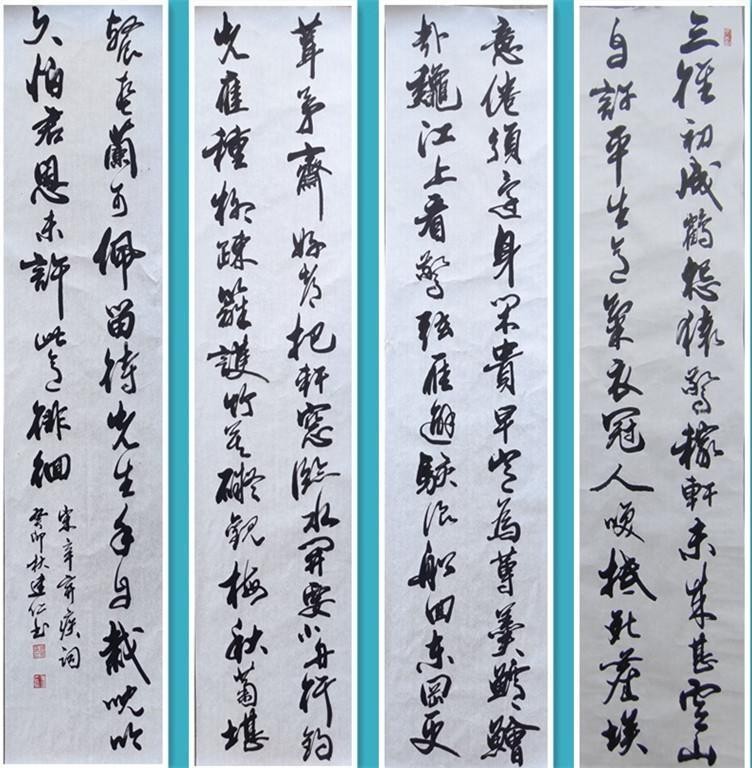 三徑初成鶴怨猿驚稼軒未來甚雲山
自許平生意氣衣冠人咲抵死塵埃
意倦須還身閑貴早豈為蓴羹鱸鱠
哉龝江上看驚弦雁避駭浪船回東岡更
葺茅齋好都把軒窓臨水開要小舟行釣
先應種柳疎籬護竹莫礙觀梅秋菊堪
餐春蘭可佩留待先生手自栽沈吟
久怕君恩未許此意徘徊
宋辛弃疾詞
癸卯秋建仁書